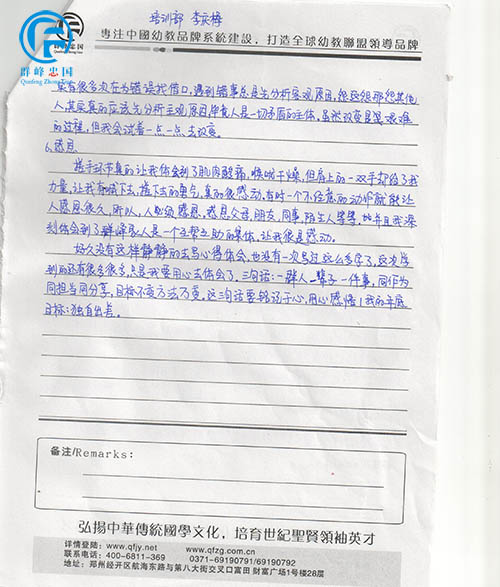 培训部 李庆梅
群峰忠国
Qunfeng Zhong Guo
專注中國幼教品牌系統建設，打造全球幼教聯盟領導品牌
我有很多次在为错误找借口，遇到错事总是先分析客观原因，怨天怨那怨其他
人，其实真的应该先分析主观原因，毕竟人是一切矛盾的主体，虽然改变是艰难
的过程，但我会试着一点一点去改变。
6.感恩
搭手环节真的让我体会到了肌肉酸痛，喉咙干燥，但肩上的一双手却给了我
力量，让我有喊下去，搭下去的勇气，真的很感动，有时一个不经意的动作就能让
人感恩很久，所以，人必须感恩，感恩父母，朋友，同事，陌生人等等，也并且我深
刻体会到了群峰人是一个互帮互助的集体，让我很是感动。
好久没有这样静静的去写心得体会，也没有一次写过这么多字了，这次学
到的还有很多很多，只是我要用心去体会了，三句话：一群人一辈子一件事，同作为
同担当同分享，目标不变方法万变，这三句话要铭记于心，用心感悟！我的年底
目标：独自出差。
备注/Remarks:
弘揚中華傳統國學文化，培育世紀聖賢領袖英才
详情登陆：www.qfjy.net www.qfzg.com.cn
联系电话：400-6811-369 0371-69190791/69190792
地址：郑州经开区航海东路与第八大街交叉口富田财富广场1号楼28层